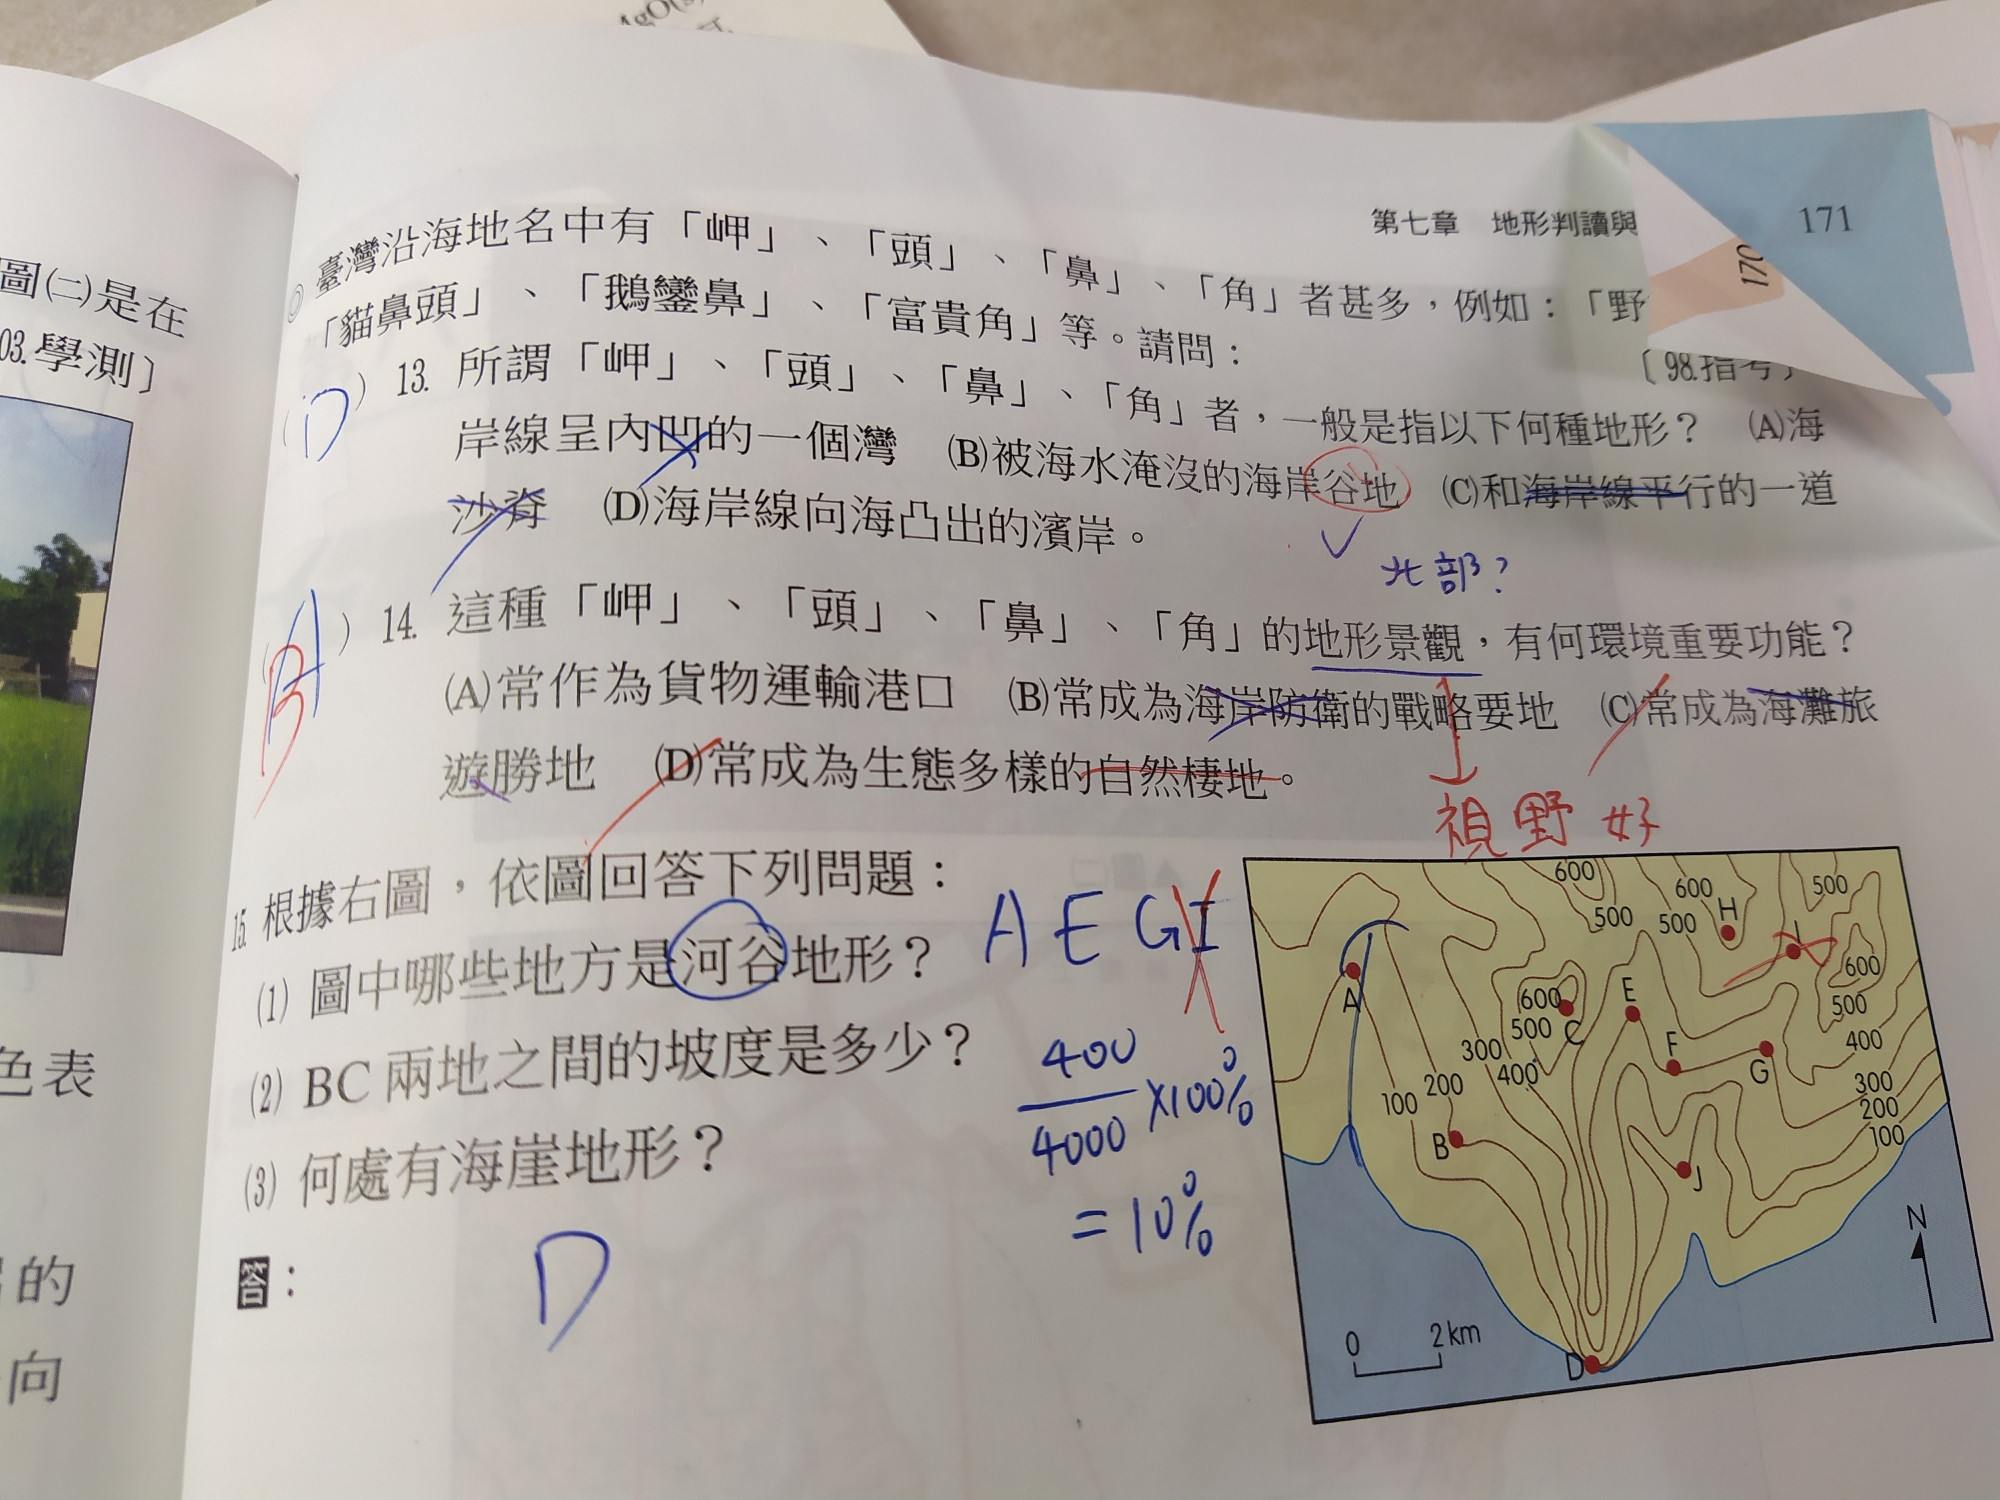 MgO(s)
第七章 地形判讀與
171
170
圖㈡是在
03.學測〕
色表
的
向
◎ 臺灣沿海地名中有「岬」、「頭」、「鼻」、「角」者甚多，例如：「野
「貓鼻頭」、「鵝鑾鼻」、「富貴角」等。請問：
〔98.指考〕
(D) 13. 所謂「岬」、「頭」、「鼻」、「角」者，一般是指以下何種地形？ (A)海
岸線呈內凹的一個灣 (B)被海水淹沒的海岸谷地 (C)和海岸線平行的一道
沙脊 (D)海岸線向海凸出的濱岸。
北部?
(A B) 14. 這種「岬」、「頭」、「鼻」、「角」的地形景觀，有何環境重要功能？
(A)常作為貨物運輸港口 (B)常成為海岸防衛的戰略要地 (C)常成為海灘旅
遊勝地 (D)常成為生態多樣的自然棲地。
視野好
15. 根據右圖，依圖回答下列問題：
(1) 圖中哪些地方是河谷地形？ A E G I
(2) BC 兩地之間的坡度是多少？
400
4000 ×100%
= 10%
(3) 何處有海崖地形？
答：
D
600
500
600
500
H
500
I
600
500
400
300
200
100
A
600
500
C
E
F
G
300
400
200
100
B
J
D
0 2km
N